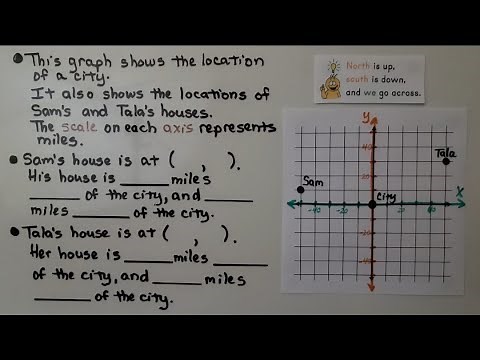 This graph shows the location
of a city.
It also shows the locations of
Sam's and Tala's houses.
The scale on each axis represents
miles.
Sam's house is at ( , ).
His house is ______ miles
______ of the city, and ______
miles ______ of the city.
Tala's house is at ( , ).
Her house is ______ miles ______
of the city, and ______ miles
______ of the city.
North is up,
south is down,
and we go across.
y
40
Tala
20
Sam
City
x
-40 -20 20 40
-20
-40